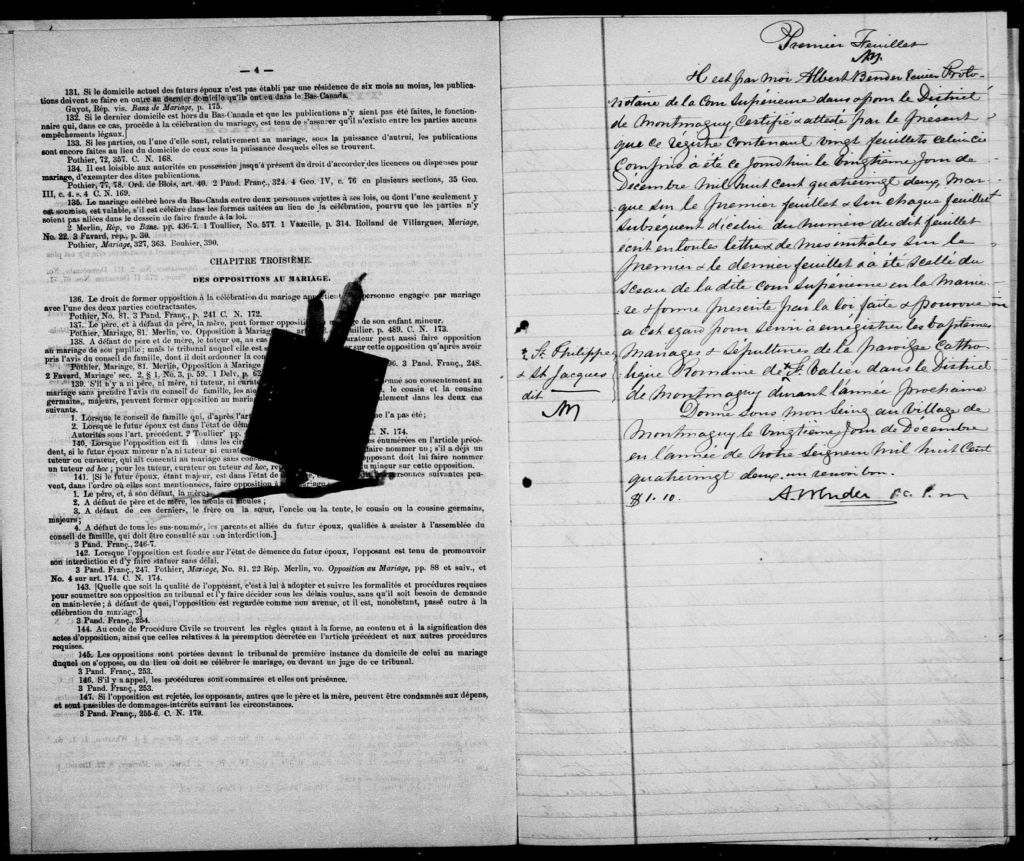 — 4 —
131. Si le domicile actuel des futurs époux n'est pas établi par une résidence de six mois au moins, les publica-
tions doivent se faire en outre au dernier domicile qu'ils ont eu dans le Bas-Canada.
Guyot, Rép. vis. Bans de Mariage, p. 175.
132. Si le dernier domicile est hors du Bas-Canada et que les publications n'y aient pas été faites, le fonction-
naire qui, dans ce cas, procède à la célébration du mariage, est tenu de s'assurer qu'il n'existe entre les parties aucuns
empêchements légaux.]
133. Si les parties, ou l'une d'elle sont, relativement au mariage, sous la puissance d'autrui, les publications
sont encore faites au lieu du domicile de ceux sous la puissance desquels elles se trouvent.
Pothier, 72, 357. C. N. 168.
134. Il est loisible aux autorités en possession jusqu'à présent du droit d'accorder des licences ou dispenses pour
mariage, d'exempter des dites publications.
Pothier, 77, 78. Ord. de Blois, art. 40. 2 Pand. Franç., 324. 4 Geo. IV, c. 76 en plusieurs sections, 35 Geo.
III, c. 4. s. 4 C. N. 169.
135. Le mariage célébré hors du Bas-Canda entre deux personnes sujettes à ses lois, ou dont l'une seulement y
est soumise, est valable, s'il est célébré dans les formes usitées au lieu de la célébration, pourvu que les parties n'y
soient pas allées dans le dessein de faire fraude à la loi.
2 Merlin, Rép, vo Bans. pp. 436-7. 1 Toullier, No. 577. 1 Vazeille, p. 314. Rolland de Villargues, Mariage,
No. 22. 3 Favard, rép., p. 30.
Pothier, Mariage, 327, 363. Bouhier, 390.
CHAPITRE TROISIÈME.
DES OPPOSITIONS AU MARIAGE.
136. Le droit de former opposition à la célébration du mariage personne engagée par mariage
avec l'une des deux parties contractantes.
Pothier, No. 81. 3 Pand. Franç., p. 241 C. N. 172.
137. Le père, et à défaut du père, la mère, peut former opposition de son enfant mineur.
Pothier, Mariage, 81. Merlin, vo. Opposition à Mariage p. 489. C. N. 173.
138. A défaut de père et de mère, le tuteur ou, au cas peut aussi faire opposition
au mariage de son pupille; mais le tribunal auquel elle est sur cette opposition qu'après avoir
pris l'avis du conseil de famille, dont il doit ordonner la
Pothier, Mariage, 81. Merlin, Opposition à 3 Pand. Franç., 248.
2 Favard, Mariage sec. 2, § 1. No. 3, p. 59. 1 Delv., p. 62
139. S'il n'y a père, ni mère, ni tuteur, ni donné son consentement au
mariage sans prendre l'avis du conseil de famille, les le cousin et la cousine
germains, majeurs, peuvent former opposition au seulement dans les deux cas
suivants.
1. Lorsque le conseil de famille qui, d'après ne l'a pas été;
2. Lorsque le futur époux est dans l'état de
Autorités sous l'art. précédent. 2 Toullier C. N. 174.
140. Lorsque l'opposition est dans les énumérées en l'article précé-
dent, si le futur époux mineur n'a ni tuteur ni faire nommer un; s'il a déjà un
tuteur ou curateur, qui ait consenti au mariage sans opposant doit lui faire nommer
un tuteur ad hoc; pour les tuteur, curateur ou tuteur ad hoc, mineur sur cette opposition.
141. [Si le futur époux, étant majeur, est dans l'état personnes suivantes peu-
vent, dans l'ordre où elles sont mentionnées, faire opposition à
1. Le père, et, à son défaut, la mère;
2. A défaut de père et de mère, les aïeuls et aïeules;
3. A défaut de ces derniers, le frère ou la sœur, l'oncle ou la tente, le cousin ou la cousine germains,
majeurs;
4. A défaut de tous les sus-nommés, les parents et alliés du futur époux, qualifiés à assister à l'assemblée du
conseil de famille, qui doit être consulté sur son interdiction.]
3 Pand. Franç., 246-7.
142. Lorsque l'opposition est fondée sur l'état de démence du futur époux, l'opposant est tenu de promouvoir
son interdiction et d'y faire statuer sans délai.
3 Pand. Franç., 247. Pothier, Mariage, No. 81. 22 Rép. Merlin, vo. Opposition au Mariage, pp. 88 et suiv., et
No. 4 sur art. 174. C. N. 174.
143. [Quelle que soit la qualité de l'opposant, c'est à lui à adopter et suivre les formalités et procédures requises
pour soumettre son opposition au tribunal et l'y faire décider sous les délais voulus, sans qu'il soit besoin de demande
en main-levée; à défaut de quoi, l'opposition est regardée comme non avenue, et il est, nonobstant, passé outre à la
célébration du mariage.]
3 Pand. Franç., 254.
144. Au code de Procédure Civile se trouvent les règles quant à la forme, au contenu et à la signification des
actes d'opposition, ainsi que celles relatives à la péremption décrétée en l'article précédent et aux autres procédures
requises.
145. Les oppositions sont portées devant le tribunal de première instance du domicile de celui au mariage
duquel on s'oppose, ou du lieu où doit se célébrer le mariage, ou devant un juge de ce tribunal.
3 Pand. Franç., 253.
146. S'il y a appel, les procédures sont sommaires et elles ont préséance.
3 Pand. Franç., 253.
147. Si l'opposition est rejetée, les opposants, autres que le père et la mère, peuvent être condamnés aux dépens,
et sont passibles de dommages-intérêts suivant les circonstances.
3 Pand. Franç., 255-6. C. N. 179.
Premier Feuillet
Il est par moi Albert Bender Ecuier Proto-
notaire de la Cour Supérieure dans & pour le District
de Montmagny, certifié & attesté par le présent
que ce régistre contenant vingt feuillets celui ci
compris a été ce Jourd'hui le vingtième jour de
Décembre mil huit cent quatrevingt deux, mar-
qué sur le premier feuillet & sur chaque feuillet
subséquent d'icelui du numéro du dit feuillet
écrit en toutes lettres & de mes initiales sur le
premier & le dernier feuillet & a été scellé du
sceau de la dite Cour Supérieure en la maniè-
re & forme présente par la loi faite & pourvue
à cet égard pour servir à enrégistrer les baptêmes
mariages & sépultures de la paroisse Catho-
lique Romaine de dans le District
de Montmagny durant l'année prochaine
Donné sous mon Seing au village de
Montmagny le vingtième jour de Décembre
en l'année de Notre Seigneur mil huit cent
quatrevingt deux. un renvoi bon.
$1.10. A. Bender P. C. S. M
St. Philippe
& St. Jacques
dit